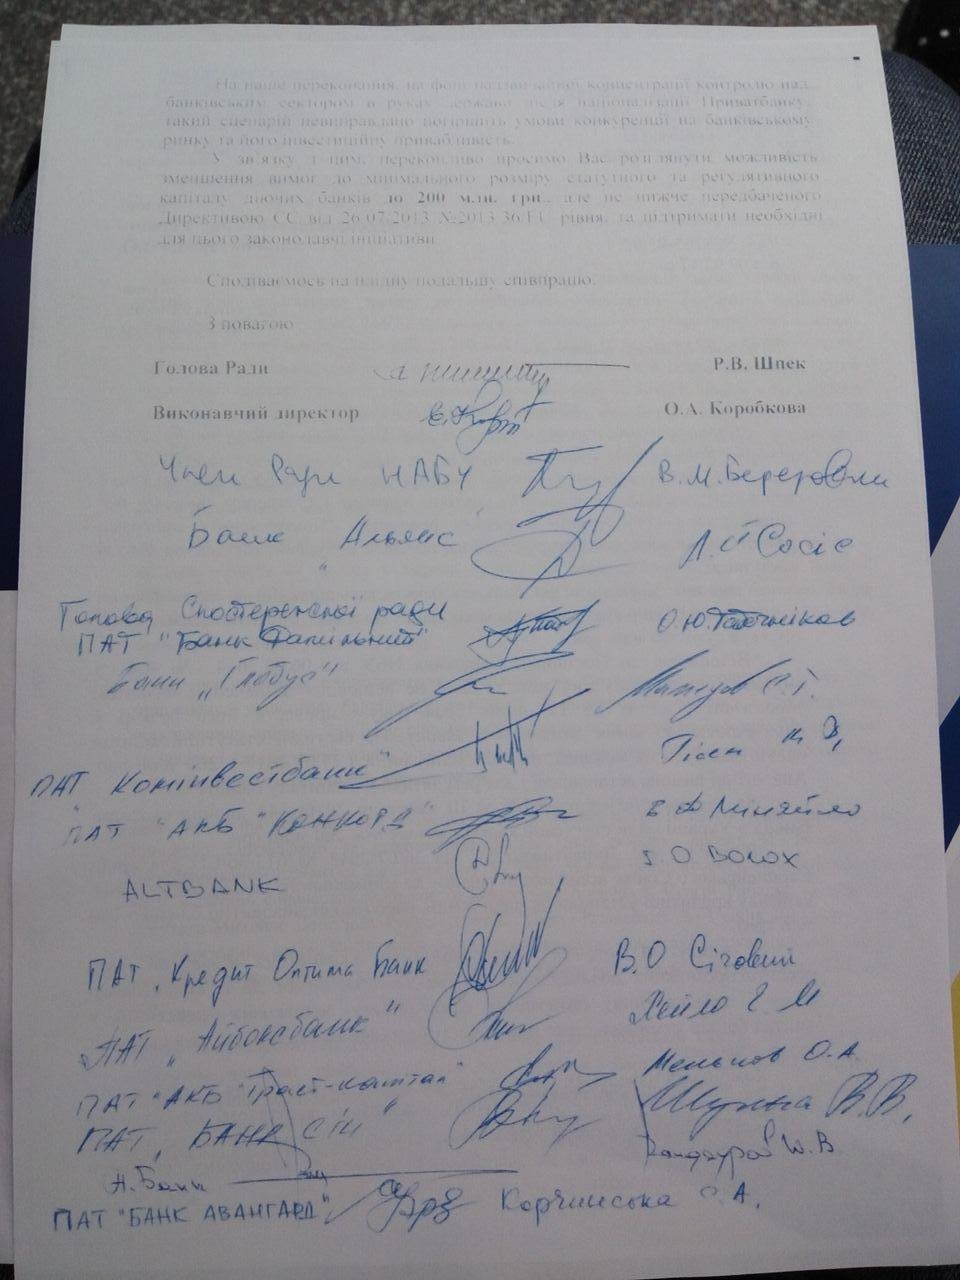 На наше переконання, на фоні надзвичайної концентрації контролю над
банківським сектором в руках держави після націоналізації Приватбанку,
такий сценарій невиправдано погіршить умови конкуренції на банківському
ринку та його інвестиційну привабливість.
У зв'язку з цим, переконливо просимо Вас розглянути можливість
зменшення вимог до мінімального розміру статутного та регулятивного
капіталу діючих банків до 200 млн. грн., але не нижче передбаченого
Директивою ЄС від 26.07.2013 №2013/36/EU рівня, та підтримати необхідні
для цього законодавчі ініціативи
Сподіваємось на плідну подальшу співпрацю.
З повагою
Голова Ради Р.В. Шпек
Виконавчий директор О.А. Коробкова
Член Ради НАБУ В.М. Березовик
Банк "Альянс" Сосіс
Голова Спостережної ради
ПАТ "Банк Фамільний" О.Ю.
Банк "Глобус"
ПАТ "Комінвестбанк"
ПАТ "АКБ "КОНКОРД" Міняйло
ALTBANK ВОЛОХ
ПАТ "Кредит Оптима Банк В.О Січовий
ПАТ "Айбоксбанк"
ПАТ "АКБ "Траст-капітал" О.А.
ПАТ "БАНК СІЧ" В.В.
А.Банк
ПАТ "БАНК АВАНГАРД" Корчинська С.А.